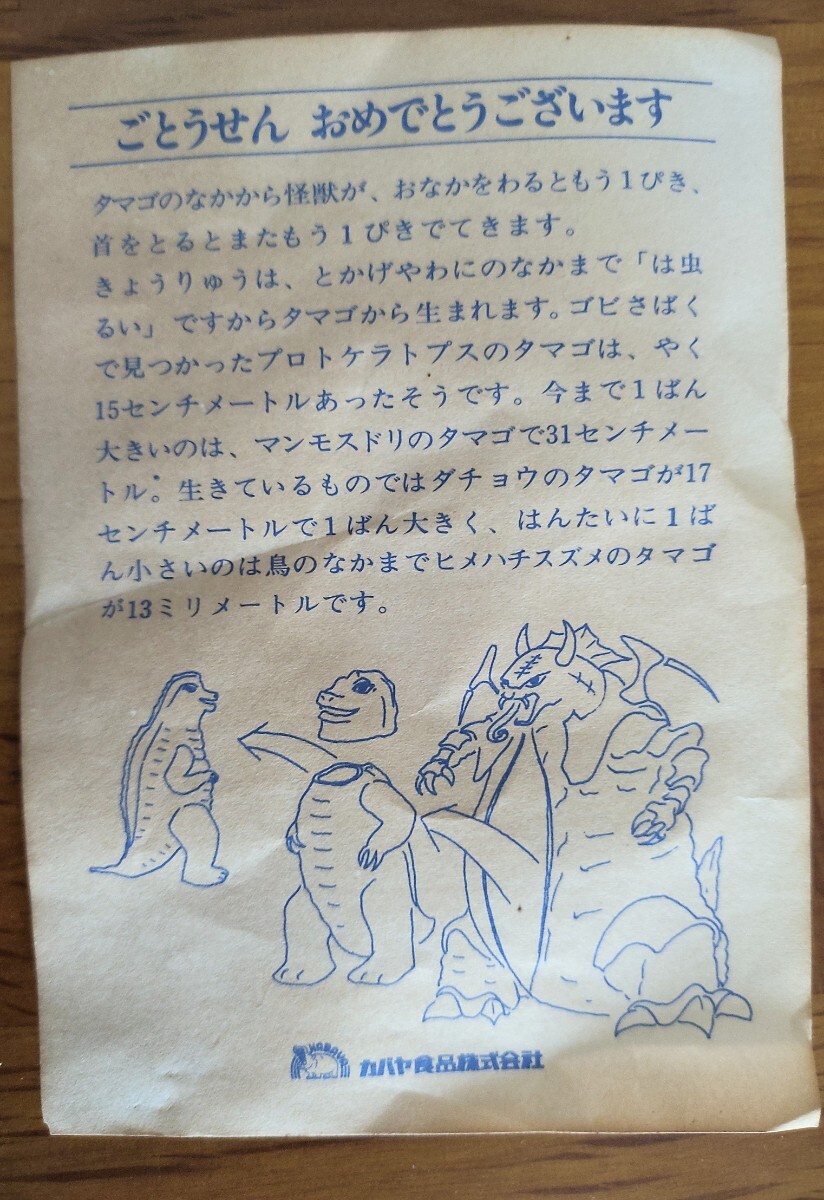 ごとうせん おめでとうございます
タマゴのなかから怪獣が、おなかをわるともう1ぴき、
首をとるとまたもう1ぴきでてきます。
きょうりゅうは、とかげやわにのなかまで「は虫
るい」ですからタマゴから生まれます。ゴビさばく
で見つかったプロトケラトプスのタマゴは、やく
15センチメートルあったそうです。今まで1ばん
大きいのは、マンモスドリのタマゴで31センチメー
トル。生きているものではダチョウのタマゴが17
センチメートルで1ばん大きく、はんたいに1ば
ん小さいのは鳥のなかまでヒメハチスズメのタマゴ
が13ミリメートルです。
KABAYA
カバヤ食品株式会社